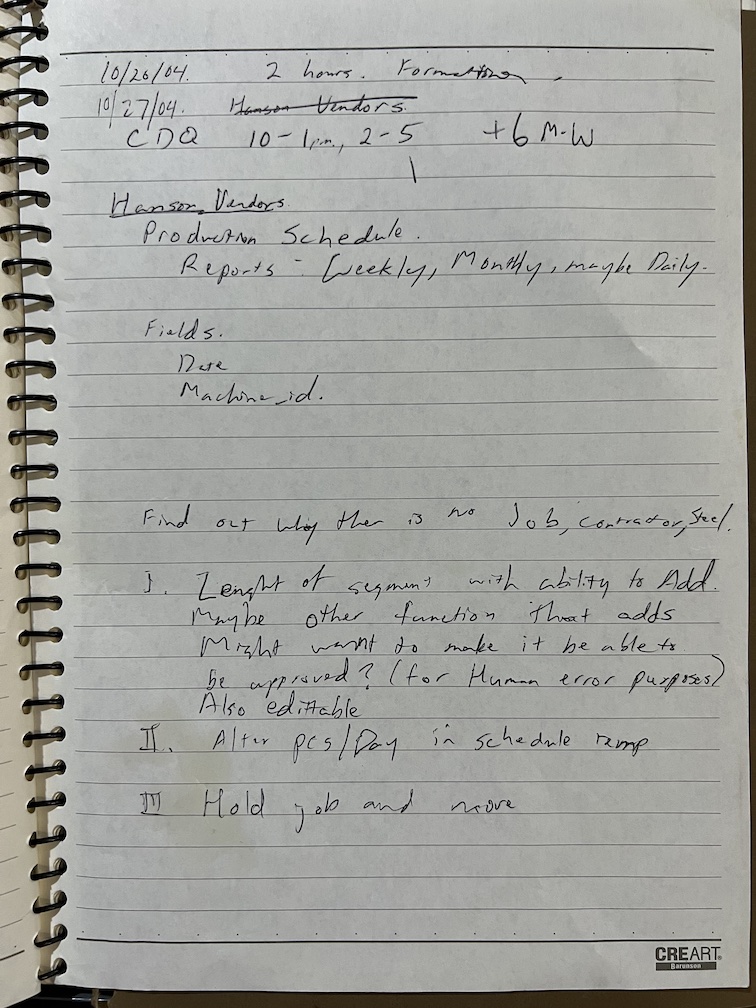 10/26/04. 2 hours. Formation.
10/27/04. Hanson Vendors.
CDQ 10-1pm, 2-5 +6 M-W
Hanson Vendors.
Production Schedule.
Reports - Weekly, Monthly, maybe Daily.
Fields.
Date
Machine_id.
Find out why ther is no Job, contractor, Steel.
I. Lenght of segment with ability to Add.
Maybe other function that adds
Might want to make it be able to
be approved? (for Human error purposes)
Also edittable
II. Alter pcs/Day in schedule
III Hold job and move
CREART
Barunson